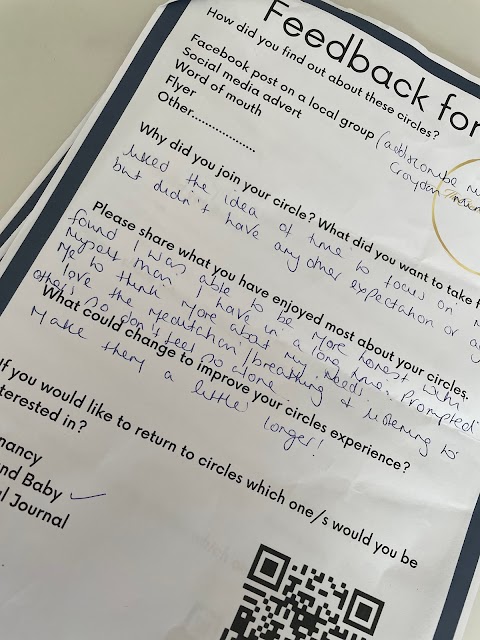 Feedback for
How did you find out about these circles?
Facebook post on a local group (addiscombe
Social media advert Croydon
Word of mouth
Flyer
Other...............
Why did you join your circle? What did you want to take f
liked the idea of time to focus on
but didn't have any other expectation or
Please share what you have enjoyed most about your circles.
found I was able to be more honest with
myself than I have in a long time. Prompted
me to think more about my needs.
love the meditation/breathing & listening to
others so don't feel so alone.
What could change to improve your circles experience?
Make them a little longer!
If you would like to return to circles which one/s would you be
nterested in?
nancy
nd Baby ✓
l Journal